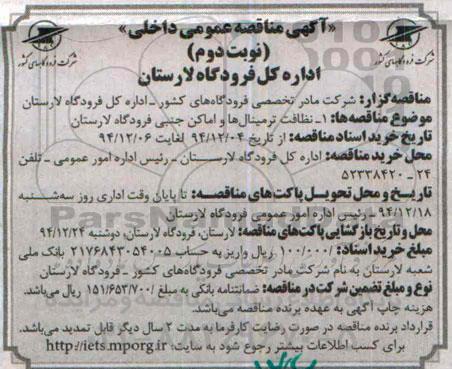 «آگهی مناقصه عمومی داخلی»
(نوبت دوم)
اداره کل فرودگاه لارستان
شرکت فرودگاههای کشور
شرکت فرودگاههای کشور
مناقصه‌گزار: شرکت مادر تخصصی فرودگاه‌های کشور ـ اداره کل فرودگاه لارستان
موضوع مناقصه‌ها: ۱ـ نظافت ترمینال‌ها و اماکن جنبی فرودگاه لارستان
تاریخ خرید اسناد مناقصه: از تاریخ ۹۴/۱۲/۰۴ لغایت ۹۴/۱۲/۰۶
محل خرید مناقصه: اداره کل فرودگاه لارستان ـ رئیس اداره امور عمومی ـ تلفن
۲۴ - ۵۲۳۳۸۴۲۰
تاریخ و محل تحویل پاکت‌های مناقصه: تا پایان وقت اداری روز سه‌شنبه
۹۴/۱۲/۱۸ ـ رئیس اداره امور عمومی فرودگاه لارستان
محل و تاریخ بازگشایی پاکت‌های مناقصه: لارستان، فرودگاه لارستان، دوشنبه ۹۴/۱۲/۲۴
مبلغ خرید اسناد: ۱۰۰/۰۰۰/ ریال واریز به حساب ۲۱۷۶۸۴۳۰۵۴۰۰۵ بانک ملی
شعبه لارستان به نام شرکت مادر تخصصی فرودگاه‌های کشور ـ فرودگاه لارستان
نوع و مبلغ تضمین شرکت در مناقصه: ضمانتنامه بانکی به مبلغ /۱۵۱/۶۵۳/۷۰۰ ریال می‌باشد.
هزینه چاپ آگهی به عهده برنده مناقصه می‌باشد.
قرارداد برنده مناقصه در صورت رضایت کارفرما به مدت ۲ سال دیگر قابل تمدید می‌باشد.
برای کسب اطلاعات بیشتر رجوع شود به سایت: http://iets.mporg.ir